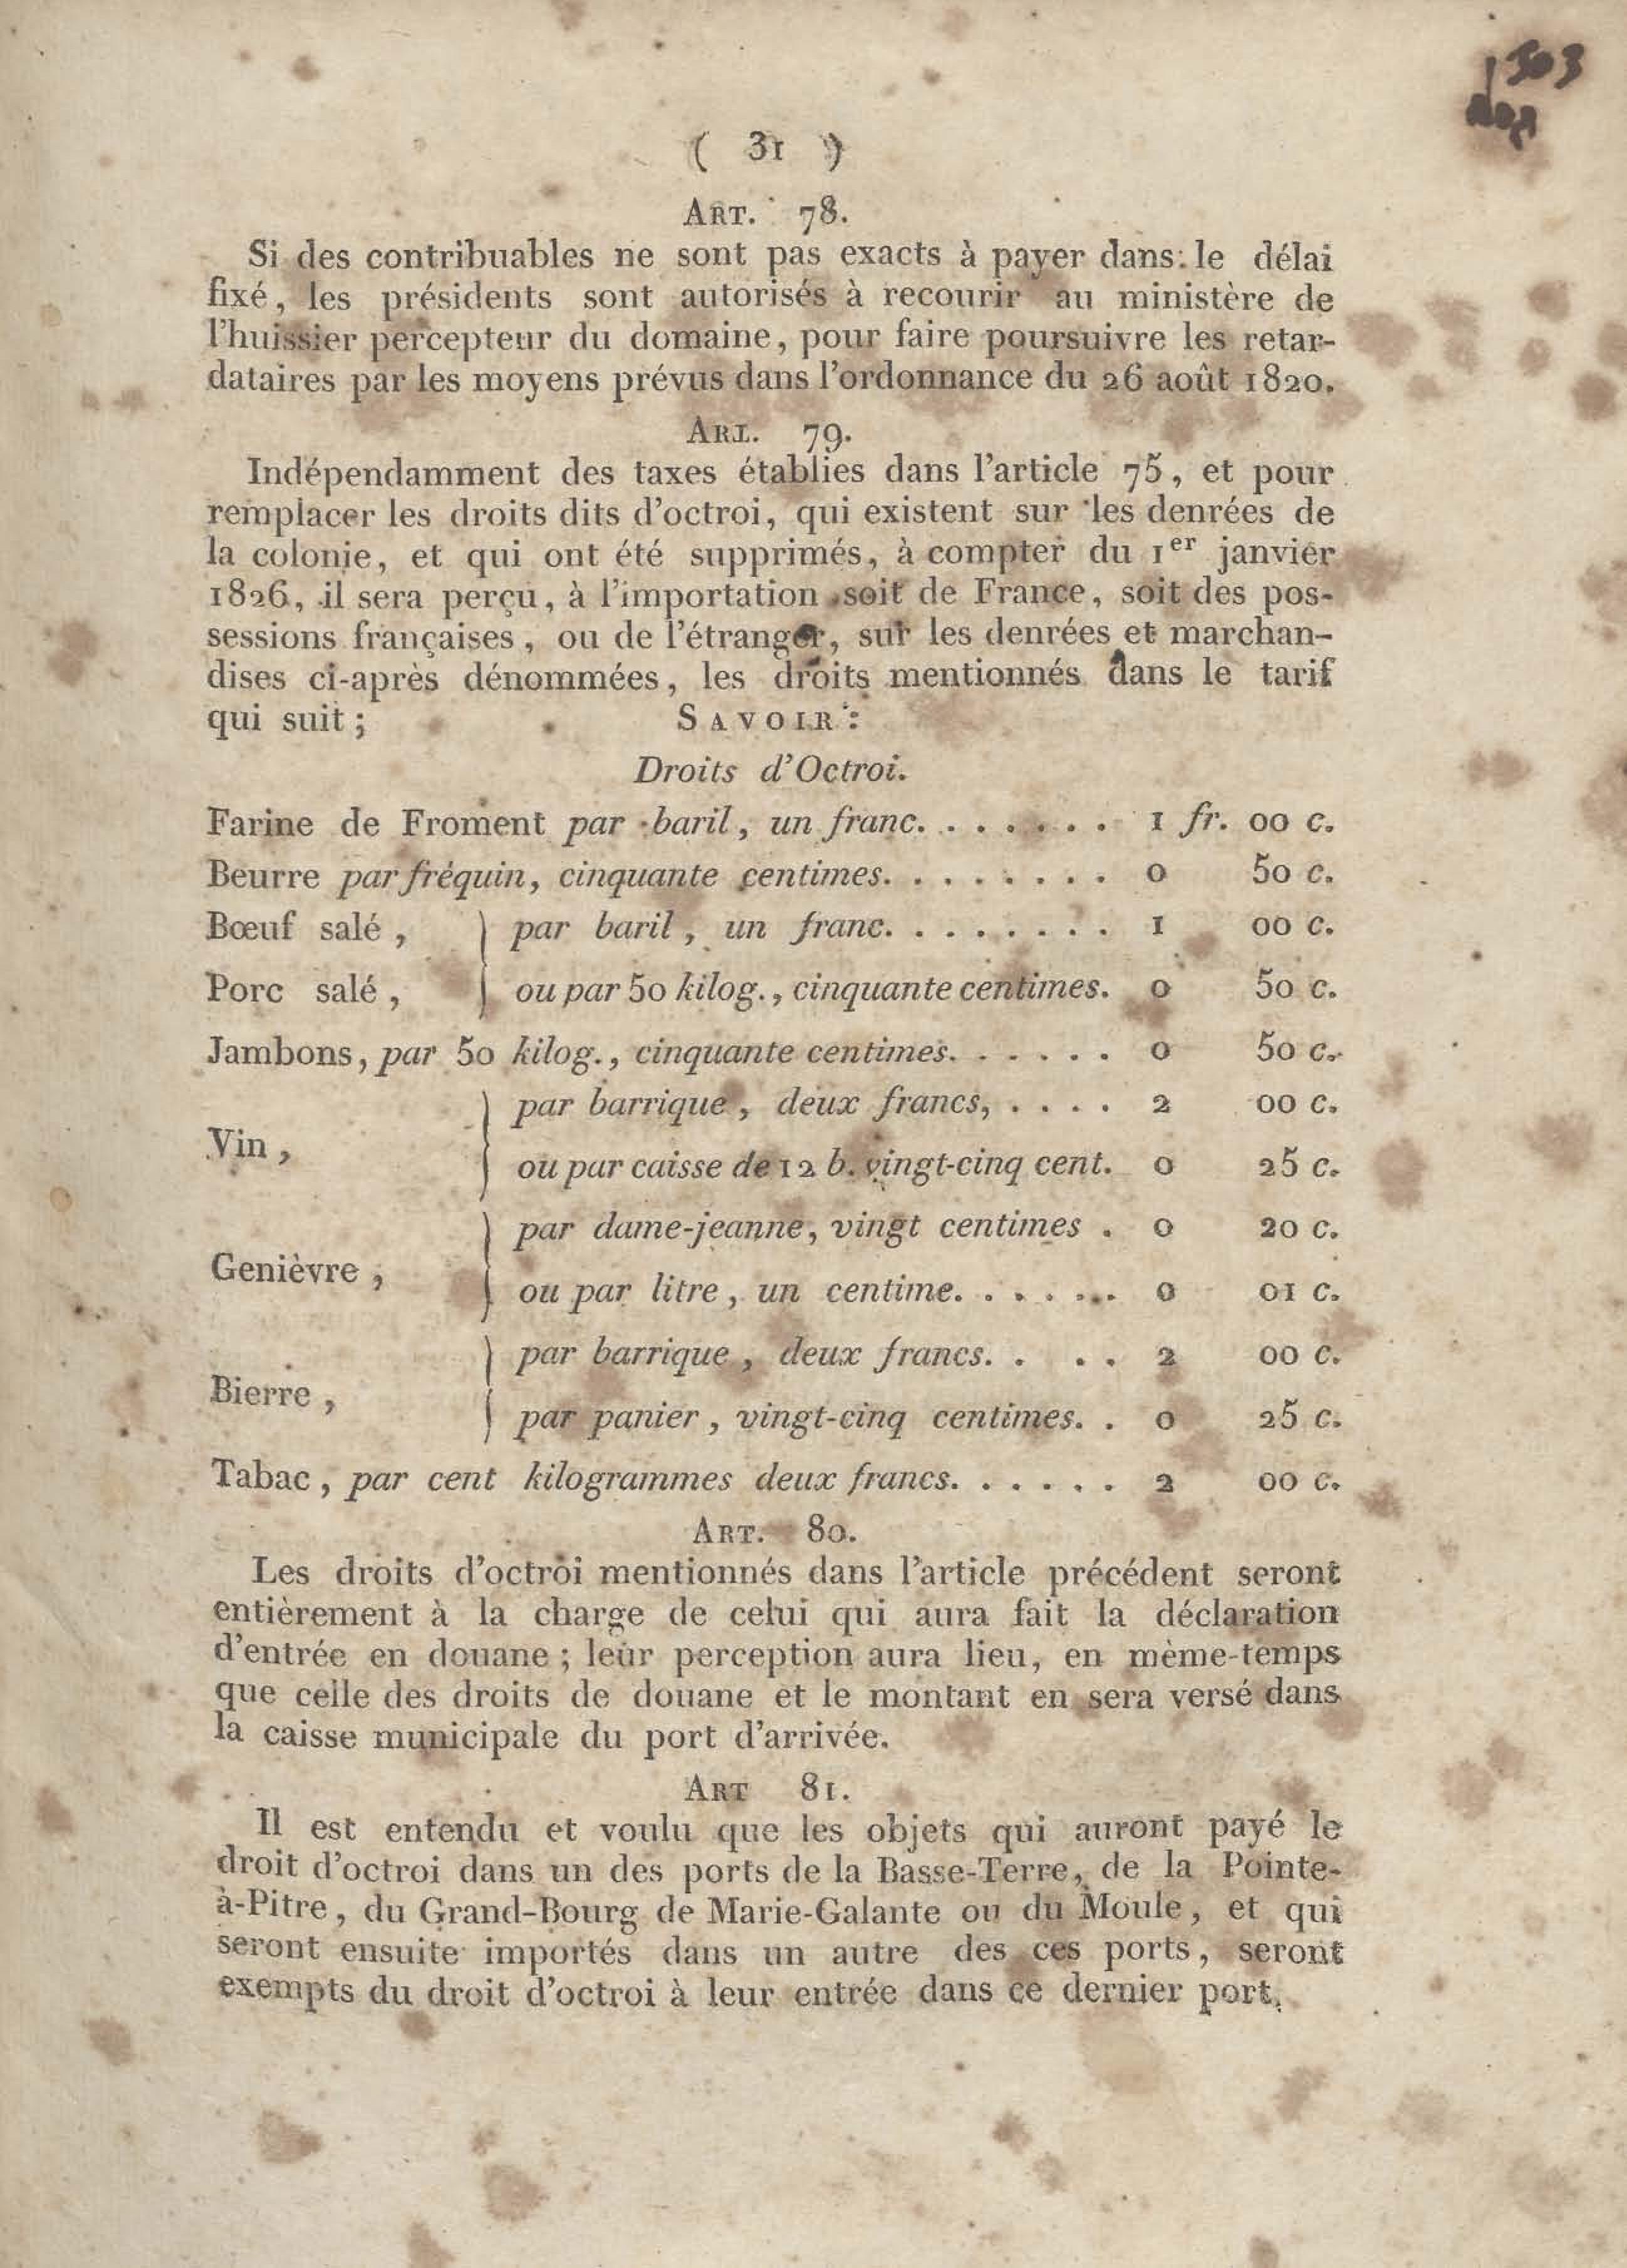 303
( 31 )
ART. 78.
Si des contribuables ne sont pas exacts à payer dans le délai
fixé, les présidents sont autorisés à recourir au ministère de
l'huissier percepteur du domaine, pour faire poursuivre les retar-
dataires par les moyens prévus dans l'ordonnance du 26 août 1820.
ART. 79.
Indépendamment des taxes établies dans l'article 75, et pour
remplacer les droits dits d'octroi, qui existent sur les denrées de
la colonie, et qui ont été supprimés, à compter du 1er janvier
1826, il sera perçu, à l'importation soit de France, soit des pos-
sessions françaises, ou de l'étranger, sur les denrées et marchan-
dises ci-après dénommées, les droits mentionnés dans le tarif
qui suit; SAVOIR:
Droits d'Octroi.
Farine de Froment par baril, un franc. . . . . . . 1 fr. 00 c.
Beurre par fréquin, cinquante centimes. . . . . . . . 0 50 c.
Bœuf salé, } par baril, un franc. . . . . . . . 1 00 c.
Porc salé, } ou par 50 kilog., cinquante centimes. 0 50 c.
Jambons, par 50 kilog., cinquante centimes. . . . . . 0 50 c.
par barrique, deux francs, . . . . 2 00 c.
Vin, }
ou par caisse de 12 b. vingt-cinq cent. 0 25 c.
par dame-jeanne, vingt centimes . 0 20 c.
Genièvre, }
ou par litre, un centime. . . . . . . 0 01 c.
par barrique, deux francs. . . . 2 00 c.
Bierre, }
par panier, vingt-cinq centimes. . 0 25 c.
Tabac, par cent kilogrammes deux francs. . . . . . 2 00 c.
ART. 80.
Les droits d'octroi mentionnés dans l'article précédent seront
entièrement à la charge de celui qui aura fait la déclaration
d'entrée en douane; leur perception aura lieu, en mème-temps
que celle des droits de douane et le montant en sera versé dans
la caisse municipale du port d'arrivée.
ART 81.
Il est entendu et voulu que les objets qui auront payé le
droit d'octroi dans un des ports de la Basse-Terre, de la Pointe-
à-Pitre, du Grand-Bourg de Marie-Galante ou du Moule, et qui
seront ensuite importés dans un autre des ces ports, seront
exempts du droit d'octroi à leur entrée dans ce dernier port.